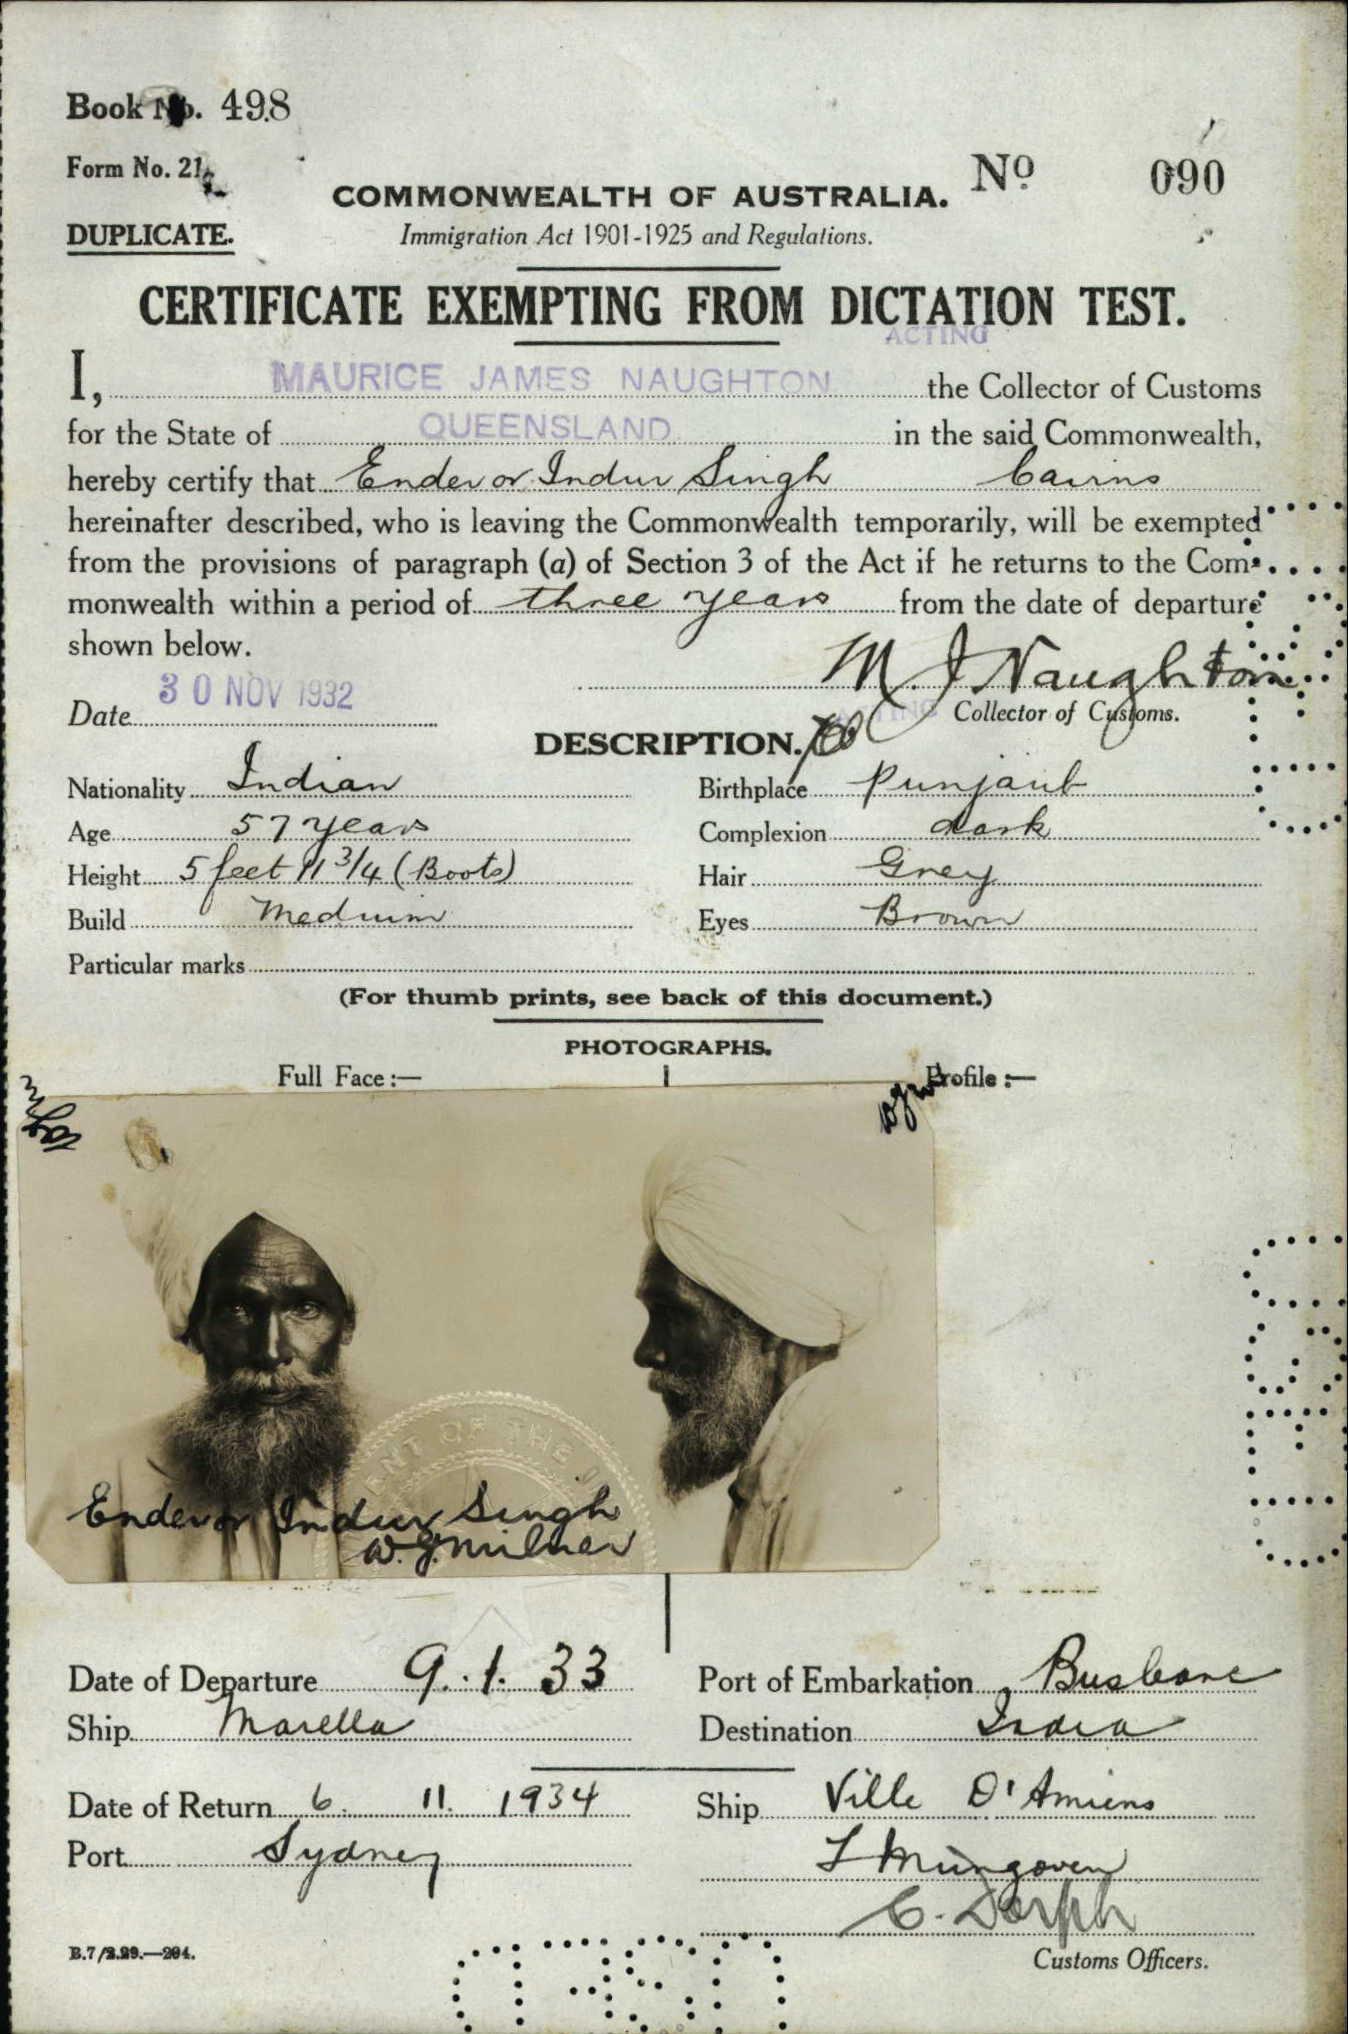 Book No. 498
Form No. 21.
No 090
COMMONWEALTH OF AUSTRALIA.
DUPLICATE.
Immigration Act 1901-1925 and Regulations.
CERTIFICATE EXEMPTING FROM DICTATION TEST.
ACTING
I, MAURICE JAMES NAUGHTON the Collector of Customs
for the State of QUEENSLAND in the said Commonwealth,
hereby certify that Ender or Indur Singh Cairns
hereinafter described, who is leaving the Commonwealth temporarily, will be exempted
from the provisions of paragraph (a) of Section 3 of the Act if he returns to the Com-
monwealth within a period of three years from the date of departure
shown below.
M. J Naughton
Date 30 NOV 1932
ACTING Collector of Customs.
DESCRIPTION.
Nationality Indian Birthplace Punjaub
Age 57 years Complexion dark
Height 5 feet 11 3/4 (Boots) Hair Grey
Build Medium Eyes Brown
Particular marks
(For thumb prints, see back of this document.)
PHOTOGRAPHS.
Full Face:— Profile:—
ENT OF THE I
Ender or Indur Singh
W. J. Milner
Date of Departure 9.1.33 Port of Embarkation Brisbane
Ship Marella Destination India
Date of Return 6. 11. 1934 Ship Ville D'Amiens
Port Sydney
L Mungoven
C. Dorph
B.7/2.29.—294. Customs Officers.